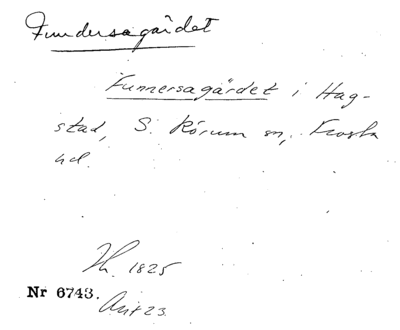 Fundersagärdet
Funnersagärdet i Hag-
stad, S. Rörum sn, Frosta
hd.
Th. 1825
Nr 6743.